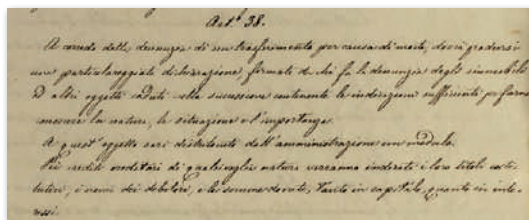 Art.º 38.
A corredo della denunzia di un trasferimento per causa di morte, dovrà prodursi
una particolareggiata dichiarazione, firmata da chi fa la denunzia degli immobili
ed altri oggetti caduti nella successione contenente le indicazioni sufficienti per farne
conoscere la natura, la situazione e l'importanza.
A quest'oggetto sarà distribuita dall'amministrazione una modula.
Pei crediti ereditari di qualsivoglia natura verranno indicati i loro titoli costi-
tutivi, i nomi dei debitori, e le somme dovute, tanto in capitale, quanto in inte-
ressi.